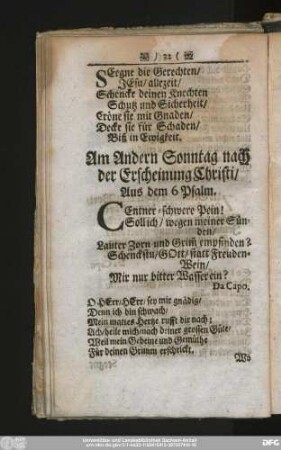 ) 22 (
SEegne die Gerechten/
JEsu/ allezeit/
Schencke deinen Knechten
Schutz und Sicherheit/
Cröne sie mit Gnaden/
Decke sie für Schaden/
Biß in Ewigkeit.
Am Andern Sonntag nach
der Erscheinung Christi/
Aus dem 6 Psalm.
CEntner-schwere Pein!
Soll ich/ wegen meiner Sün-
den/
Lauter Zorn und Grimm empfinden?
Schenckstu/ GOtt/ statt Freuden-
Wein/
Mir nur bitter Wasser ein?
Da Capo.
O HErr/ HErr/ sey mir gnädig/
Denn ich bin schwach/
Mein mattes Hertze rufft dir nach:
Ach/ heile mich/ nach deiner grossen Güte/
Weil mein Gebeine und Gemüthe
Für deinen Grimm erschrickt.
Wo
Universitäts- und Landesbibliothek Sachsen-Anhalt
DFG